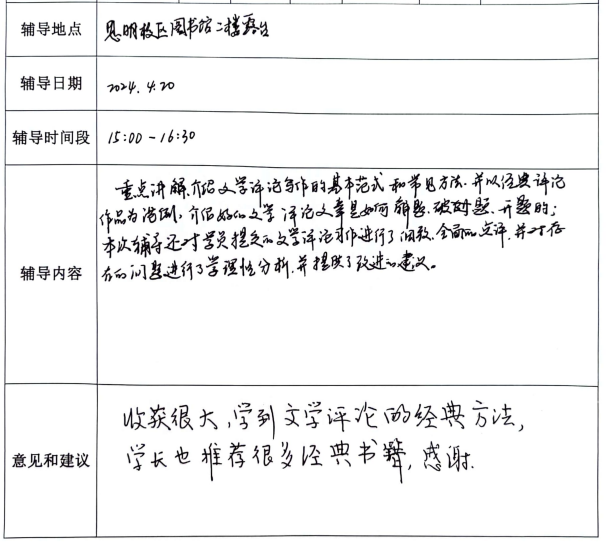 辅导地点 思明校区图书馆二楼露台
辅导日期 2024.4.20
辅导时间段 15:00-16:30
重点讲解、介绍文学评论写作的基本范式和常见方法,并以经典评论
作品为范例,介绍好的文学评论文章是如何解题、破题、开题的;
辅导内容 本次辅导还对学员提交的文学评论习作进行了细致、全面的点评,并对存
在的问题进行了学理性分析,并提供了改进的建议。
收获很大,学到文学评论的经典方法,
意见和建议 学长也推荐很多经典书籍,感谢.